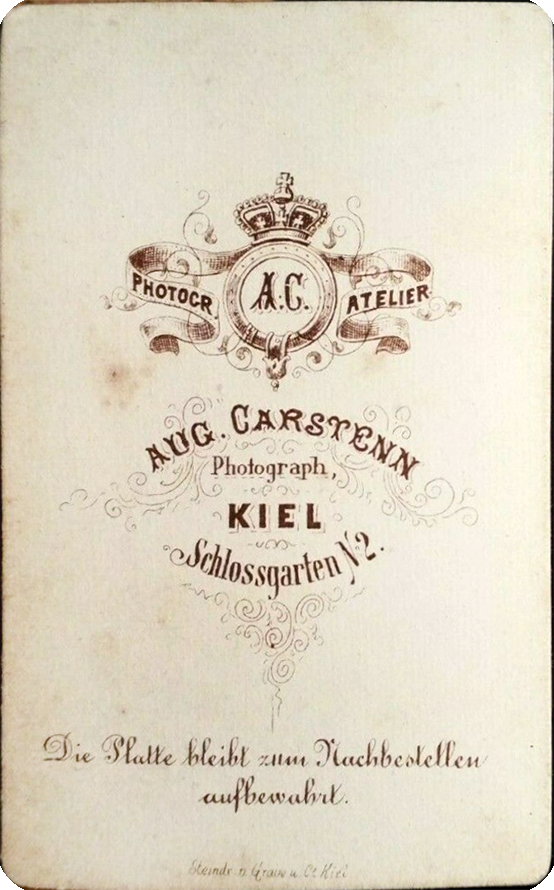 PHOTOGR. A.C. ATELIER
AUG. CARSTENN
Photograph,
KIEL
Schlossgarten N 2.
Die Platte bleibt zum Nachbestellen
aufbewahrt.
Steindr. v. Grave u. Co Kiel